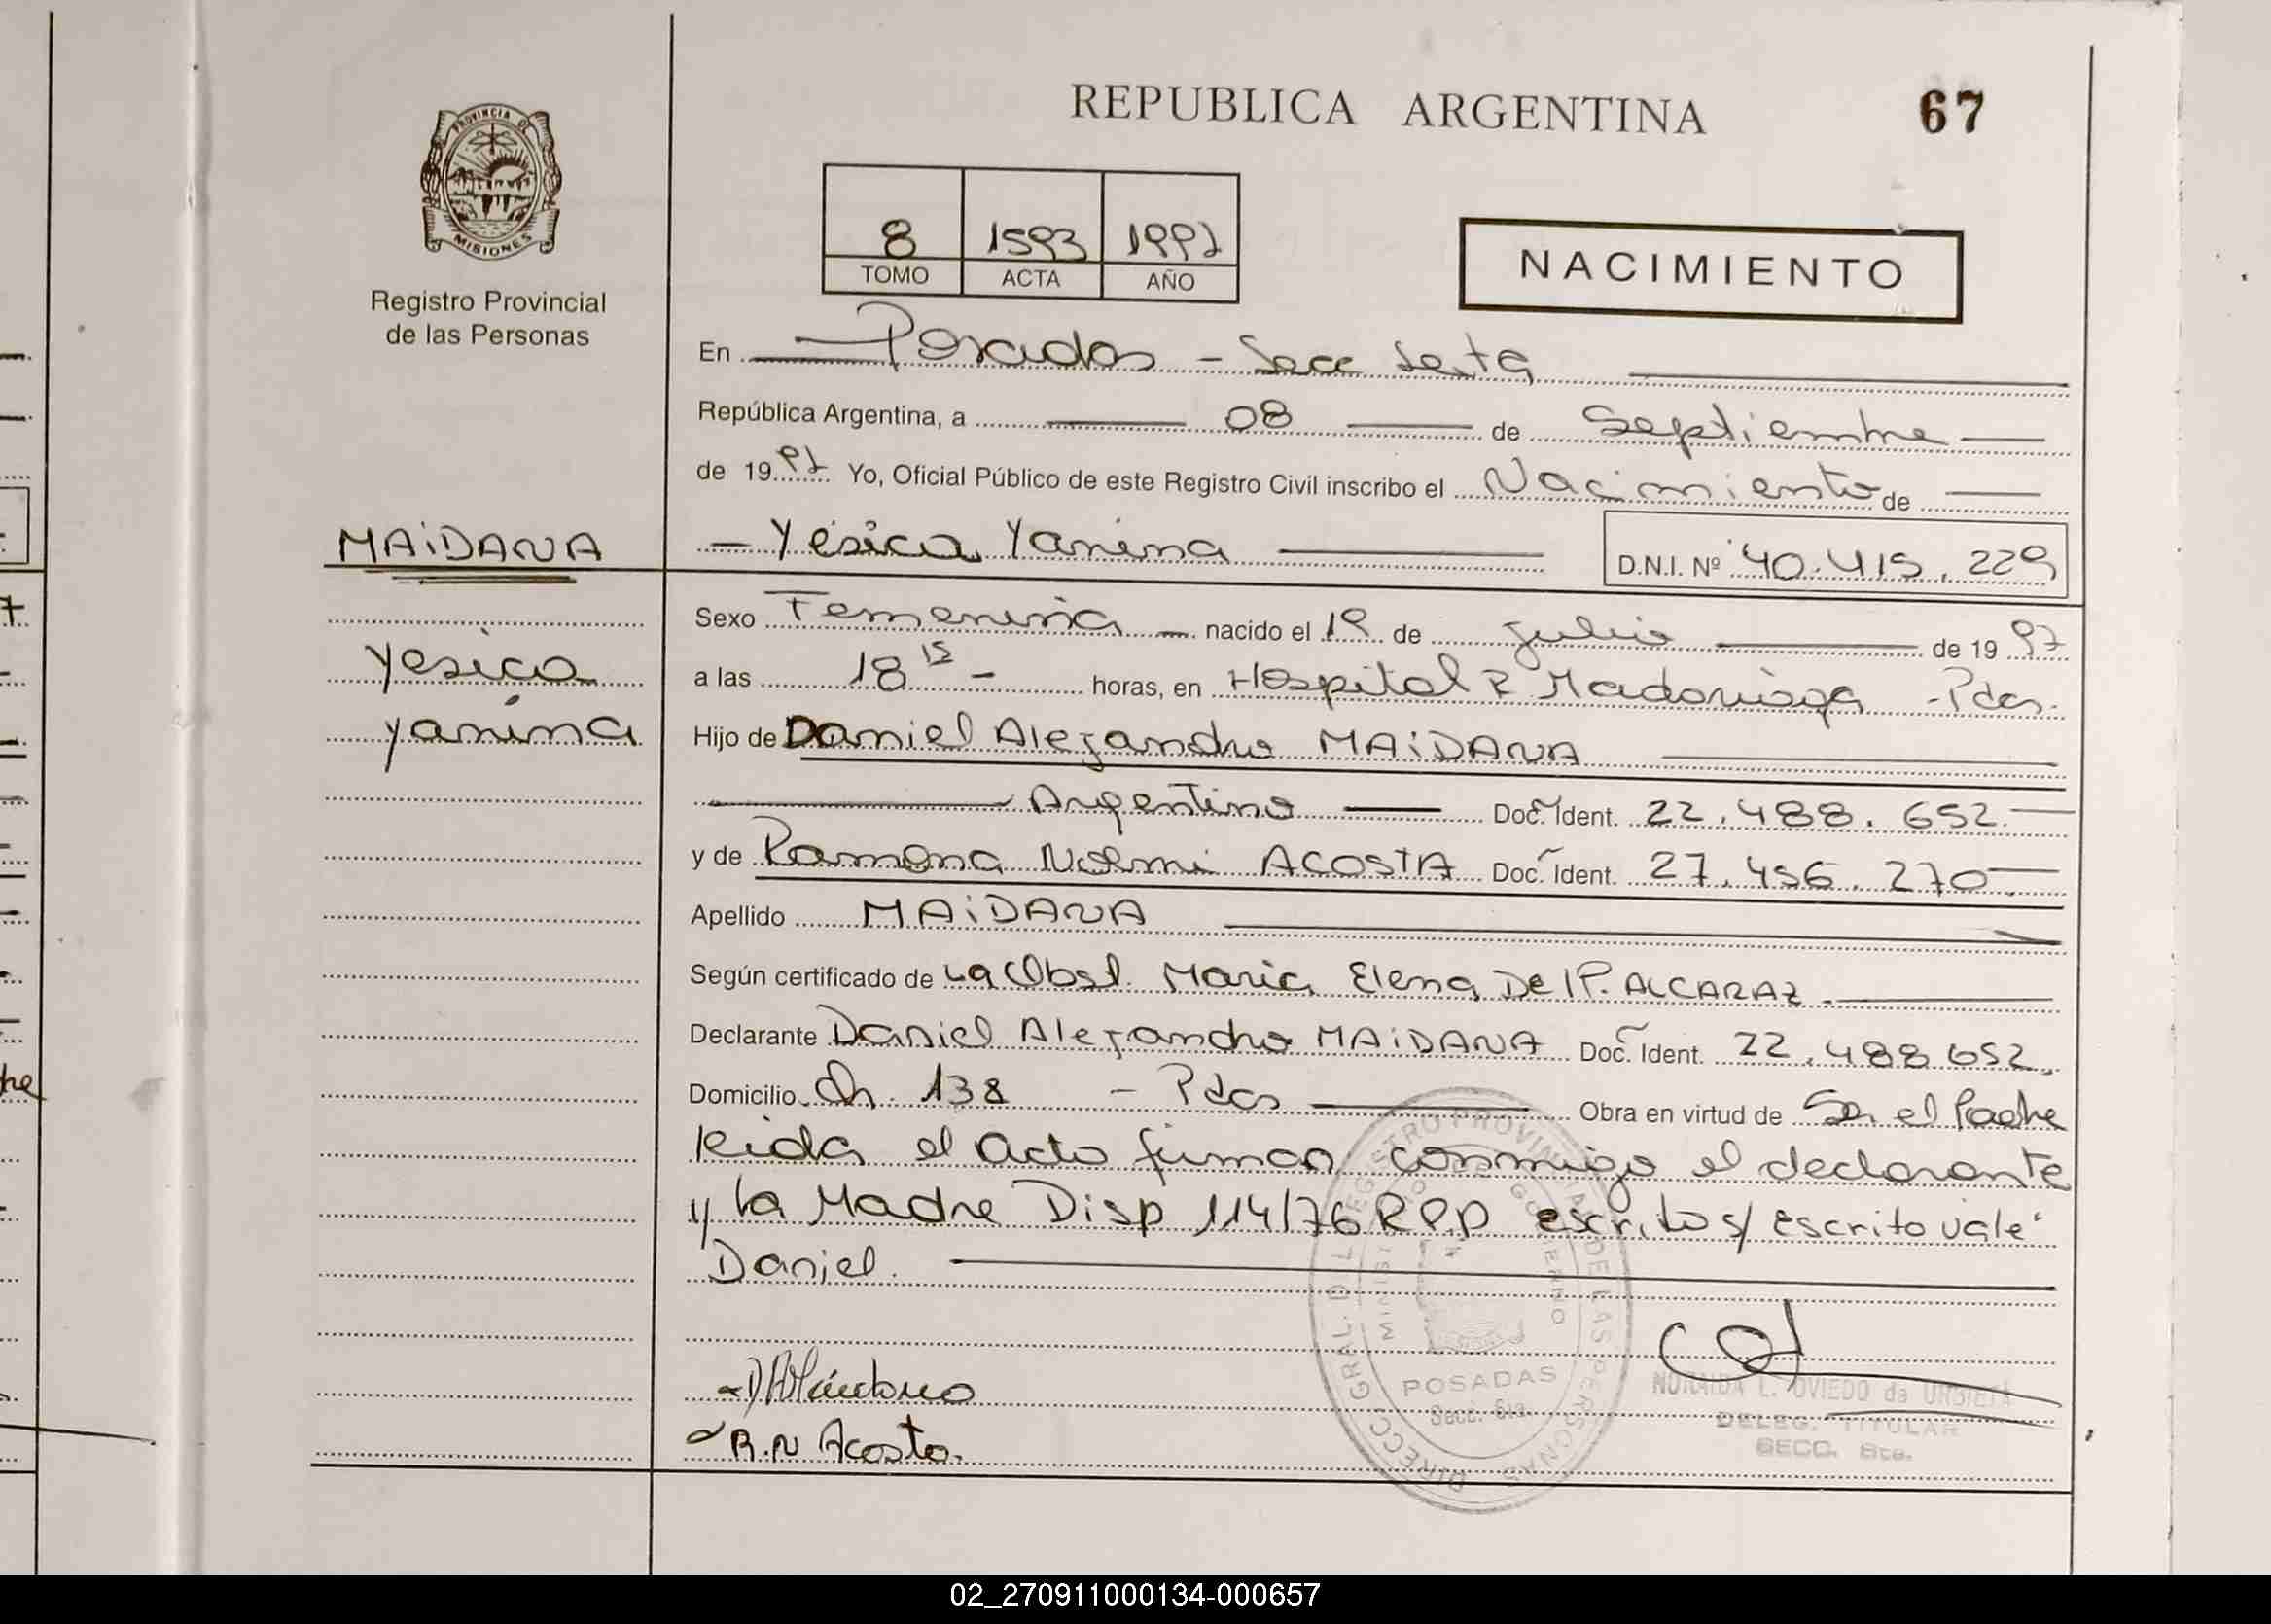 REPUBLICA ARGENTINA
67
PROVINCIA DE
MISIONES
Registro Provincial
de las Personas
8 1593 1997
TOMO ACTA AÑO
NACIMIENTO
En Posadas - Secc Sexta
República Argentina, a 08 de Septiembre
de 1997 Yo, Oficial Público de este Registro Civil inscribo el Nacimiento de
MAiDANA
- Yésica Yanina
D.N.I. Nº 40.415.229
Yesica
yanina
Sexo Femenina nacido el 19 de julio de 1997
a las 18 15 - horas, en Hospital R Madariaga - Pdas.
Hijo de Daniel Alejandro MAiDANA
Argentino Doc. Ident. 22.488.652.
y de Ramona Noemi ACOSTA Doc. Ident. 27.456.270.
Apellido MAiDANA
Según certificado de La Obst. Maria Elena De P. ALCARAZ.
Declarante Daniel Alejandro MAiDANA Doc. Ident. 22.488.652.
Domicilio Ch. 138 - Pdas Obra en virtud de Ser el Padre
leida el acta firman conmigo el declarante
y la Madre Disp 114/76 RPP escrito s/ escrito vale:
Daniel.
R.N Acosta.
DIRECC. GRAL. DEL REGISTRO PROVINCIAL DE LAS PERSONAS
MINISTERIO DE GOBIERNO
POSADAS
Secc. 6ta.
NORAIDA L. OVIEDO de URBIETA
DELEG. TITULAR
SECC. 6ta.
02_270911000134-000657